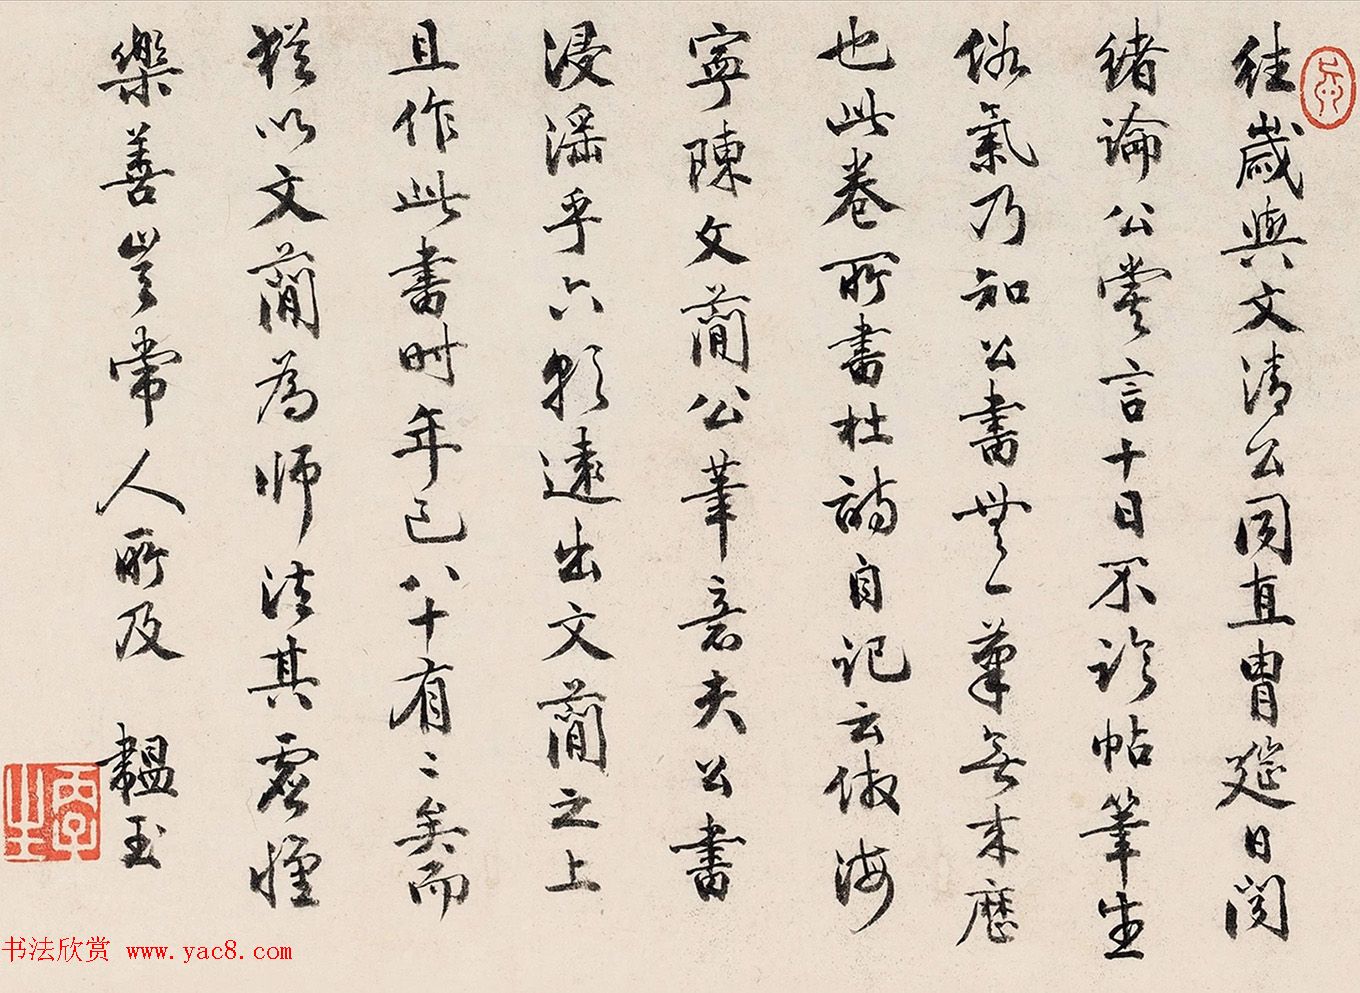 往歲與文清公同直胄筵日闻
緒論公嘗言十日不臨帖筆生
俗氣乃知公書無一筆無來歷
也此卷所書杜詩自記云倣海
寧陳文蕳公筆意夫公書
浸淫乎六朝遠出文蕳之上
且作此書时年已八十有二矣而
猶以文蕳為師法其虛懷
樂善豈常人所及 韞玉
书法欣赏 www.yac8.com